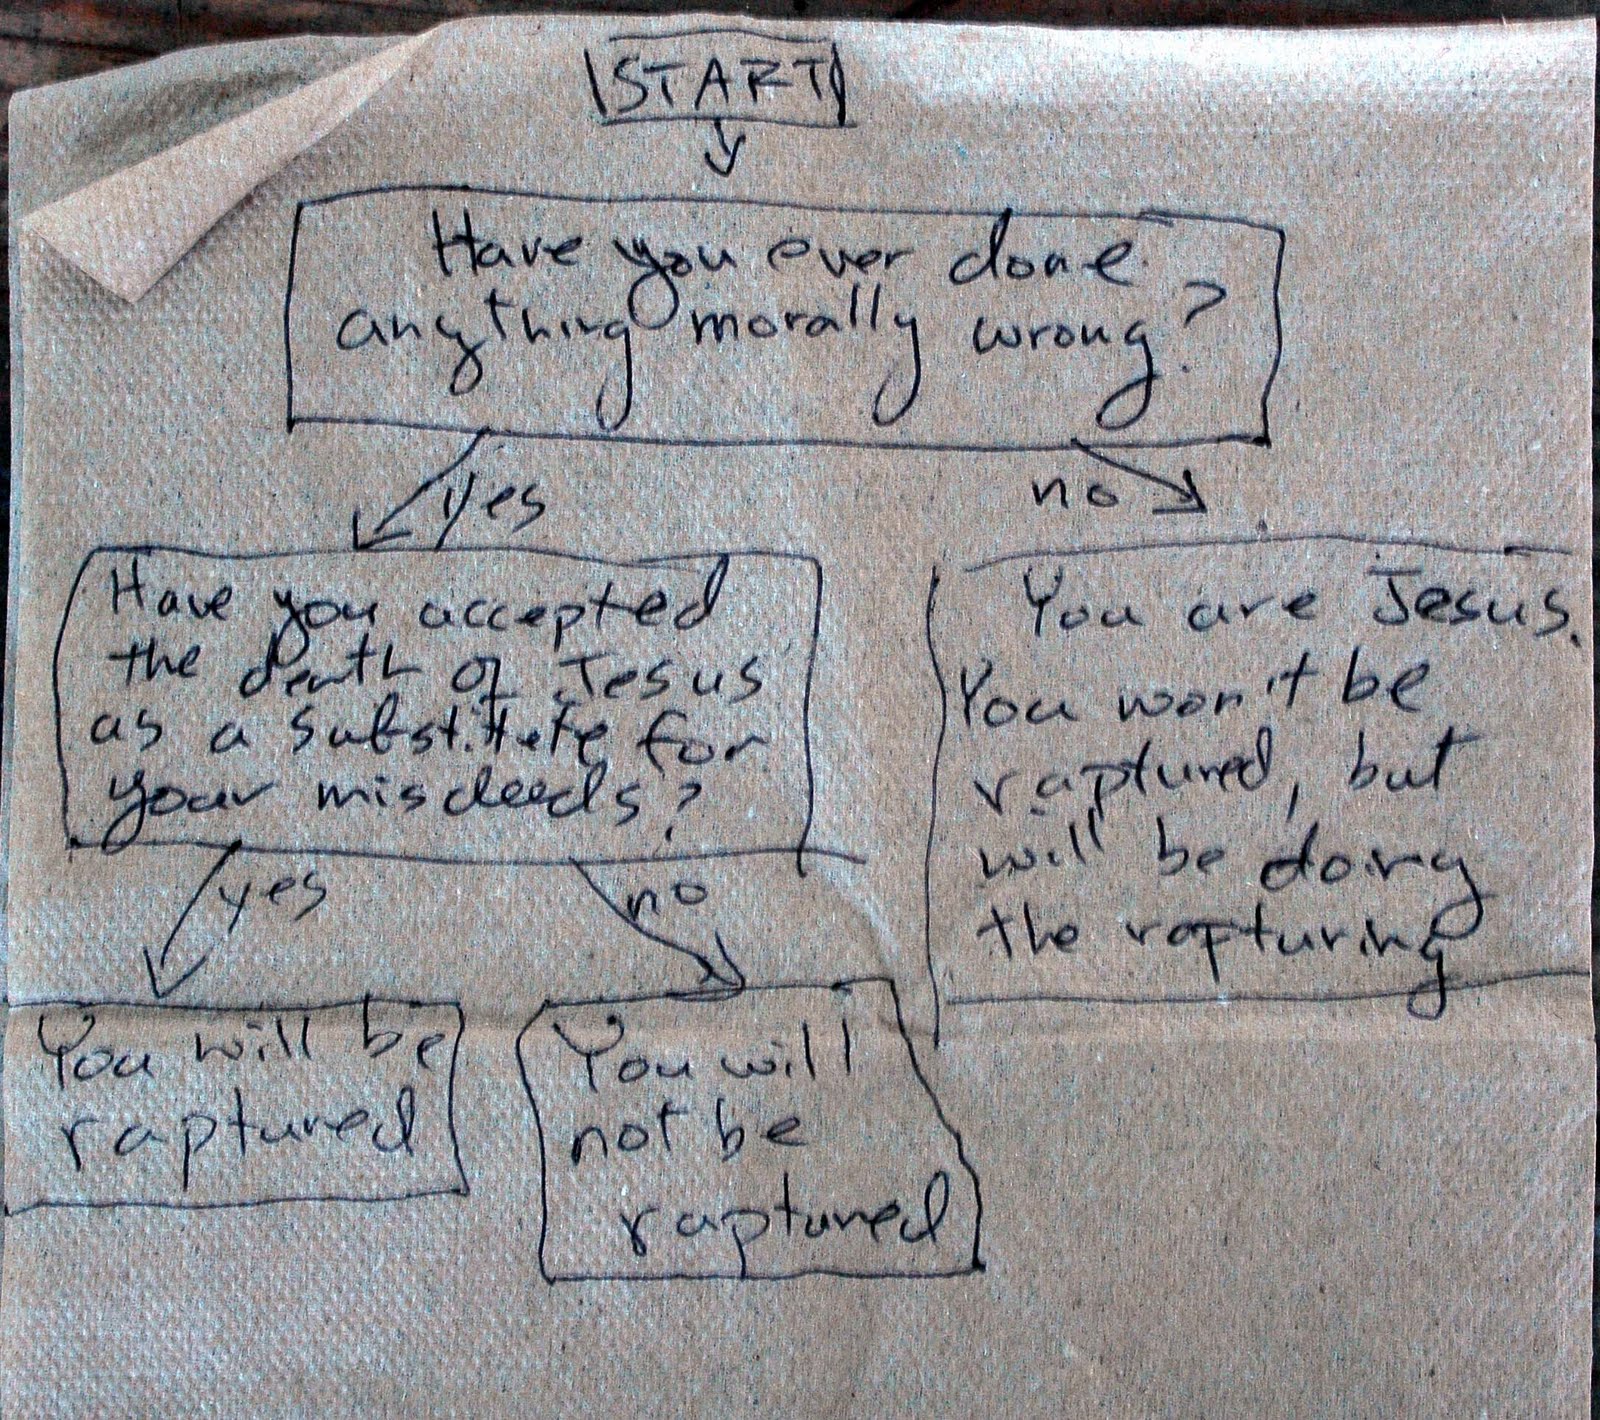 START
Have you ever done
anything morally wrong?
yes
no
Have you accepted
the death of Jesus
as a substitute for
your misdeeds?
You are Jesus.
You won't be
raptured, but
will be doing
the rapturing
yes
no
You will be
raptured
You will
not be
raptured